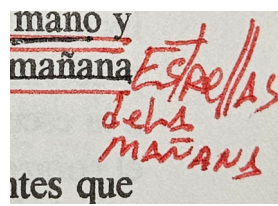 mano y
mañana
Estrellas
de la
MAÑANA
ntes que